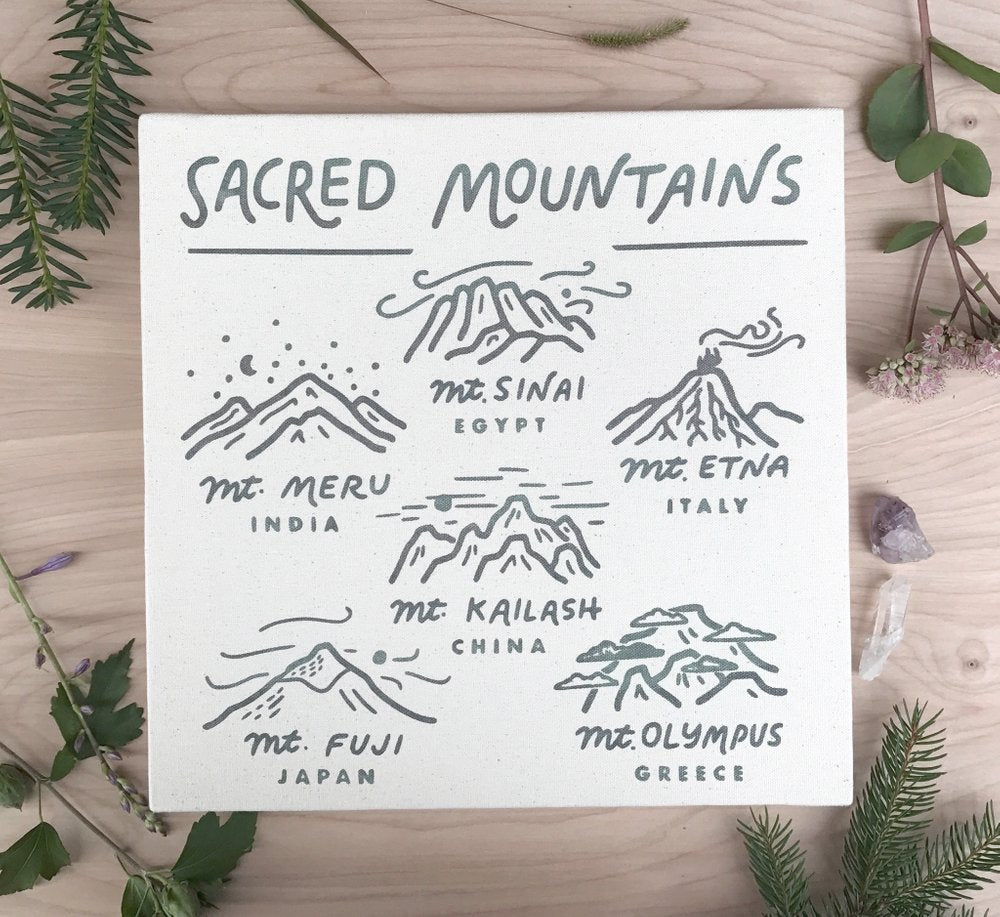 SACRED MOUNTAINS
mt. SINAI
EGYPT
mt. MERU
INDIA
mt. ETNA
ITALY
mt. KAILASH
CHINA
mt. FUJI
JAPAN
mt. OLYMPUS
GREECE